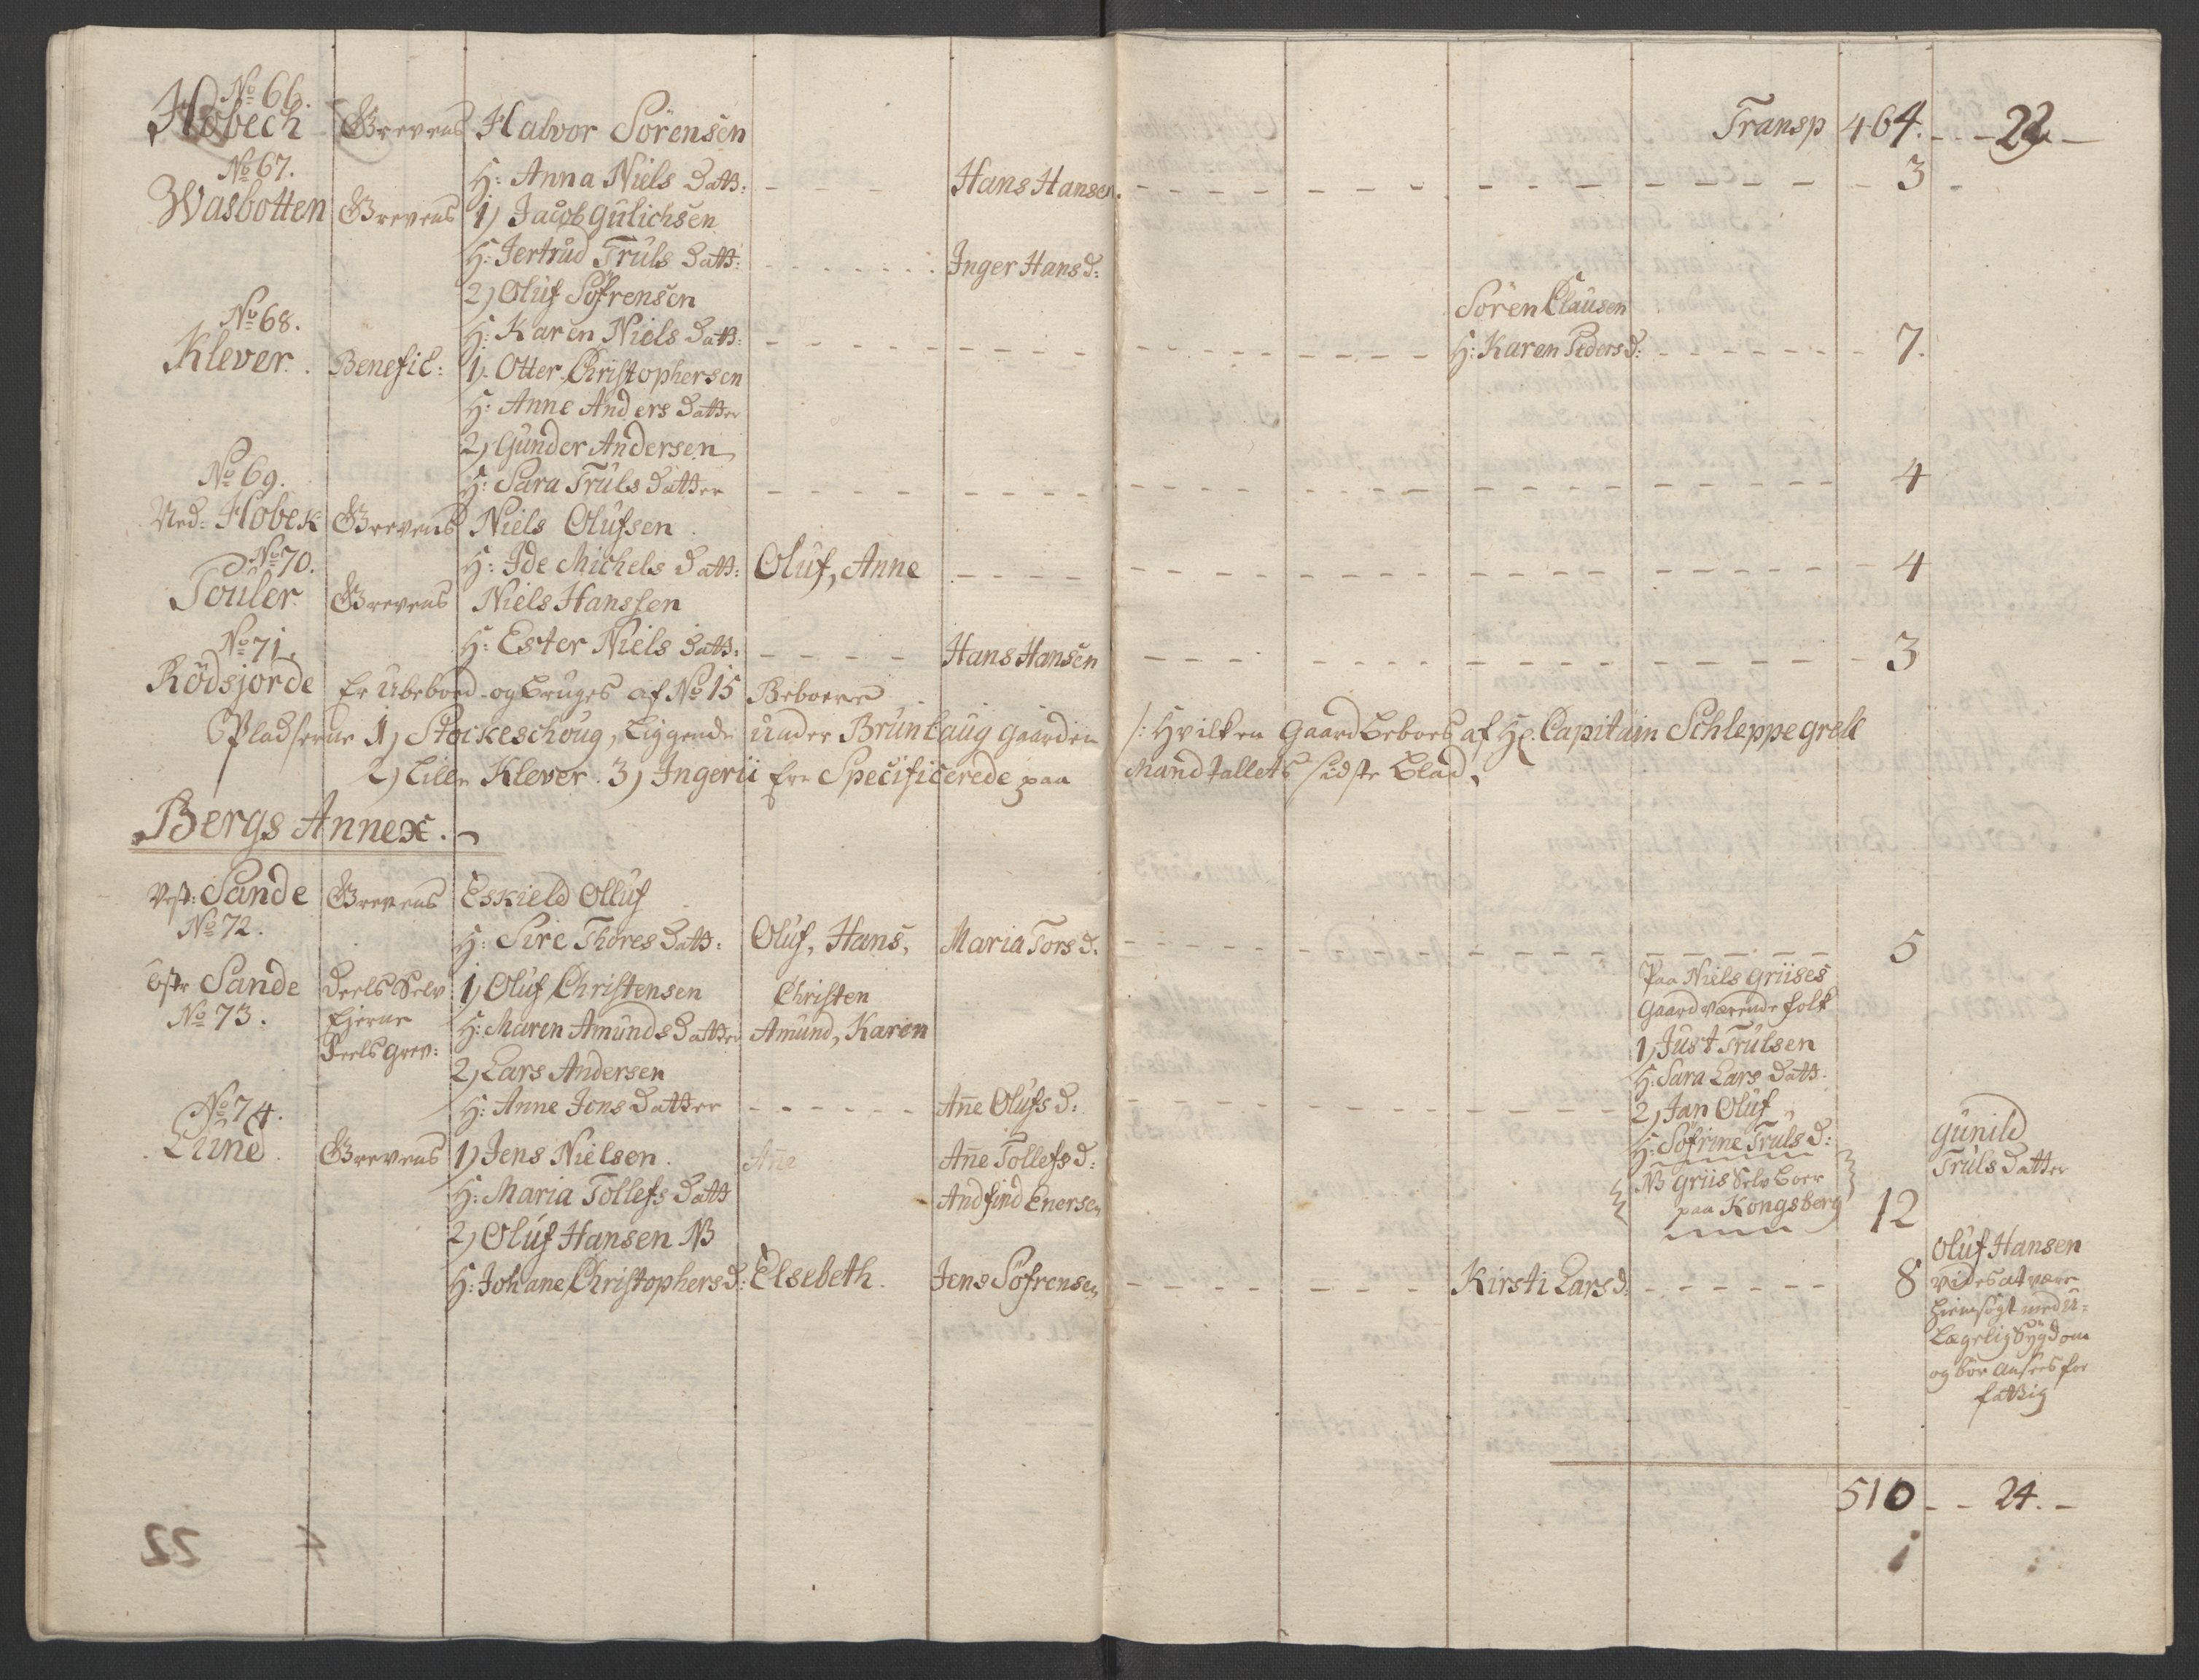 Transp 464. - - 22 -
No 66.
Hobech Grevens Halvor Sörensen
H: Anna Niels Datt: - - - - Hans Hansen. - - - - 3 -
No 67.
Wasbotten Grevens 1) Jacob Gulichsen
H: Jertrud Truls Datt: - - - - Inger Hans d:
2) Oluf Söfrensen Sören Clausen
H: Karen Niels Datt: - - - - H: Karen Peders d: - - - - 7.
No 68.
Klever. Benefic: 1. Otter Christophersen
H: Anne Anders Datter
2) Gunder Andersen
H: Sara Truls Datter - - - - 4
No 69.
Ned: Hobek Grevens Niels Olufsen.
H: Ide Michels Datt: Oluf, Anne - - - - 4
No 70.
Fouler. Grevens Niels Hanssen
H: Ester Niels Datt: - - - - Hans Hansen - - - - 3
No 71.
Rödsjorde Er Ubeboed og bruges af No 15 Beboere
Pladserne 1) Stockeschoug, Liggende under Brunlaug gaarden /: Hvilken Gaard beboes af Hr. Capitain Schleppegrell
2) Lille Klever. 3) Ingerii Ere Specificerede paa Mandtallets sidste Blad.
Bergs Annex.
Vest: Sande Grevens Eskield Olluf
No 72.
H: Sire Thores Datt: Oluf, Hans, Maria Tors d. - - - - 5
Östr Sande Deels Selv 1) Oluf Christensen Christen
No 73. Ejerne H: Maren Amunds Datter Amund, Karen
Deels Grev: 2) Lars Andersen
H: Anne Jens Datter - - - - Añe Olufs d: - - - -
Paa Niels Griises
Gaard værende folk
1) Just Trulsen
H: Sara Lars Datt.
2) Jan Oluf
H: Söfrine Truls d:
NB Griis Selv boer
paa Kongsberg 12
Gunild
Truls Datter
No 74.
Lund. Grevens 1) Jens Nielsen. Añe Añe Tollefs d:
H: Maria Tollefs Datt Andfind Enersen
2) Oluf Hansen NB
H: Johane Christophers d: Elsebeth. Jens Söfrensen - - - - Kirsti Lars d: - - - - 8
Oluf Hansen
vides at være
hiemsögt med U=
Lægelig Sygdom
og bör ansees for
fattig
510 - - 24. -
22